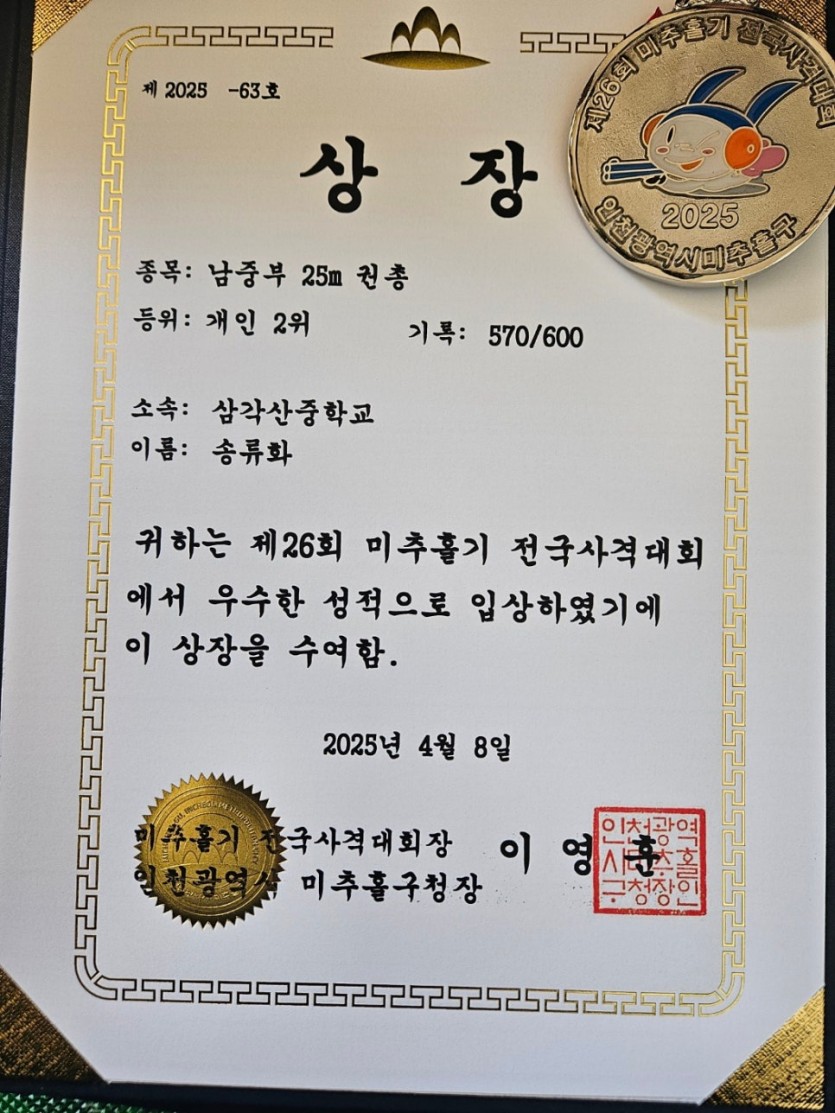 제 2025 -63호
상 장
제26회 미추홀기 전국사격대회
2025
인천광역시미추홀구
종목: 남중부 25m 권총
등위: 개인 2위 기록: 570/600
소속: 삼각산중학교
이름: 송류화
귀하는 제26회 미추홀기 전국사격대회
에서 우수한 성적으로 입상하였기에
이 상장을 수여함.
2025년 4월 8일
미추홀기 전국사격대회장
인천광역시 미추홀구청장
이 영 훈
인천광역
시미추홀
구청장인